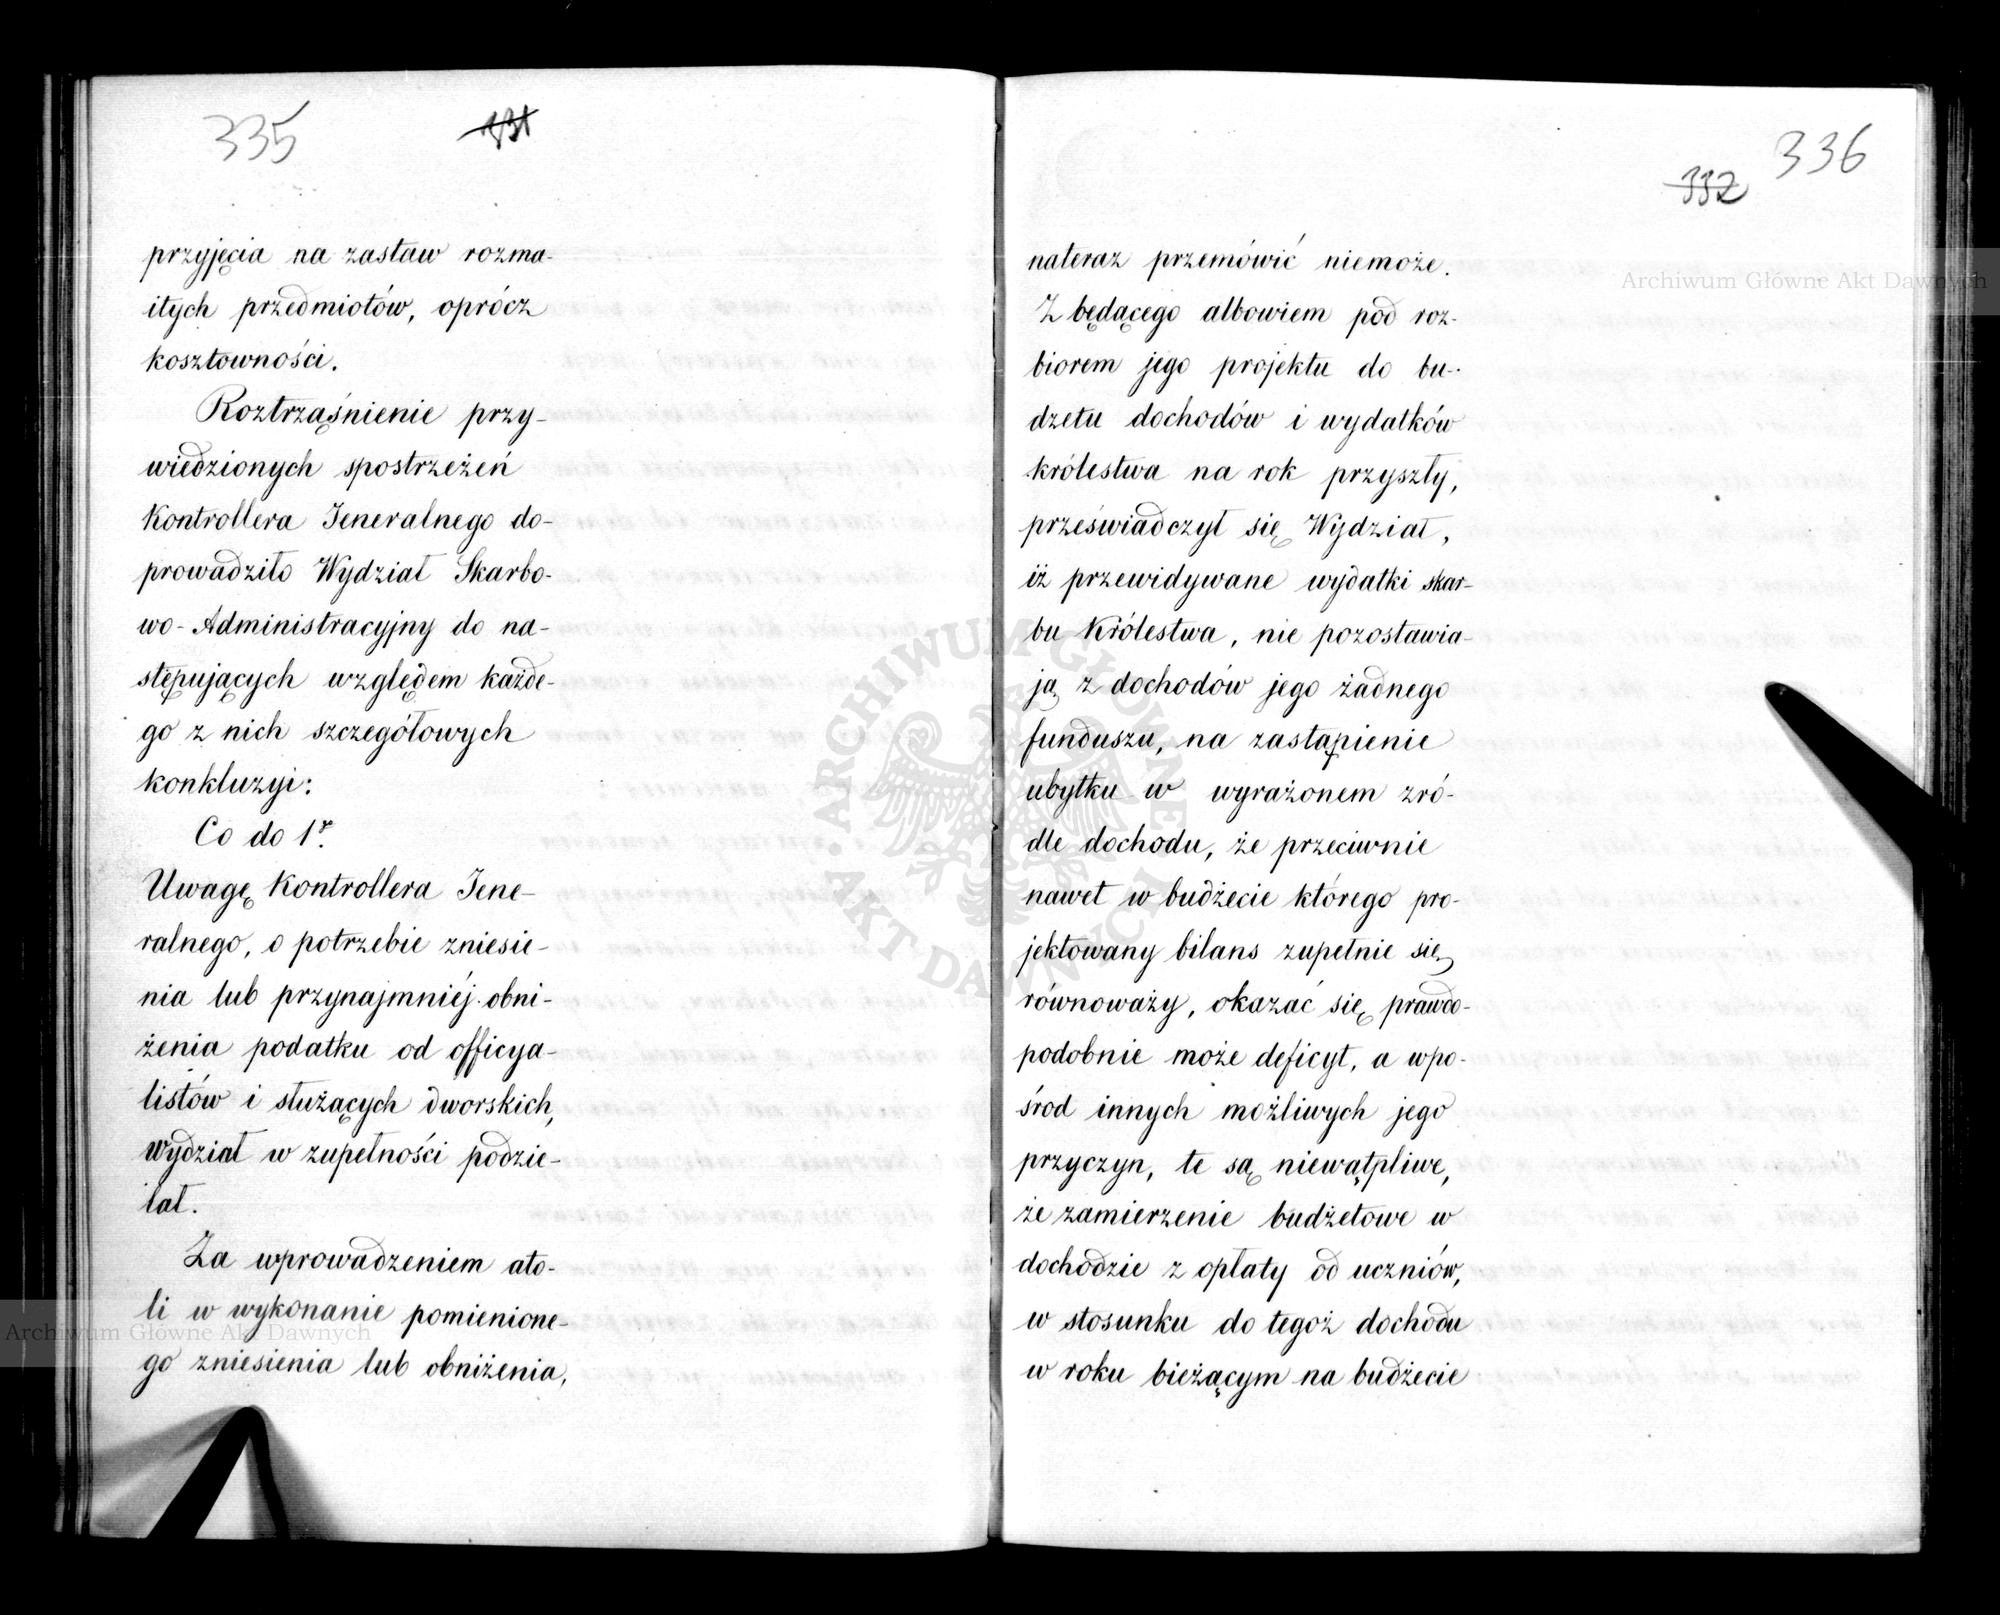 335
331
przyjęcia na zastaw rozma-
itych przedmiotów, oprócz
kosztowności.
Roztrząśnienie przy-
wiedzionych spostrzeżeń
Kontrollera Jeneralnego do-
prowadziło Wydział Skarbo-
wo-Administracyjny do na-
stępujących względem każde-
go z nich szczegółowych
konkluzyi:
Co do 1º.
Uwagę Kontrollera Jene-
ralnego, o potrzebie zniesie-
nia lub przynajmniéj obni-
żenia podatku od officya-
listów i służących dworskich,
Wydział w zupełności podzie-
lał.
Za wprowadzeniem ato-
li w wykonanie pomienione-
go zniesienia lub obniżenia,
336
332
nateraz przemówić niemoże.
Z będącego albowiem pod roz-
biorem jego projektu do bu-
dżetu dochodów i wydatków
królestwa na rok przyszły,
przeświadczył się Wydział,
iż przewidywane wydatki skar-
bu Królestwa, nie pozostawia-
ją z dochodów jego żadnego
funduszu, na zastąpienie
ubytku w wyrażonem zró-
dle dochodu, że przeciwnie
nawet w budżecie którego pro-
jektowany bilans zupełnie się
równoważy, okazać się prawdo-
podobnie może deficyt, a wpo-
śród innych możliwych jego
przyczyn, te są niewątpliwe,
że zamierzenie budżetowe w
dochodzie z opłaty od uczniów,
w stosunku do tegoż dochodu
w roku bieżącym na budżecie
Archiwum Główne Akt Dawnych
ARCHIWUM GŁÓWNE AKT DAWNYCH
Archiwum Główne Akt Dawnych